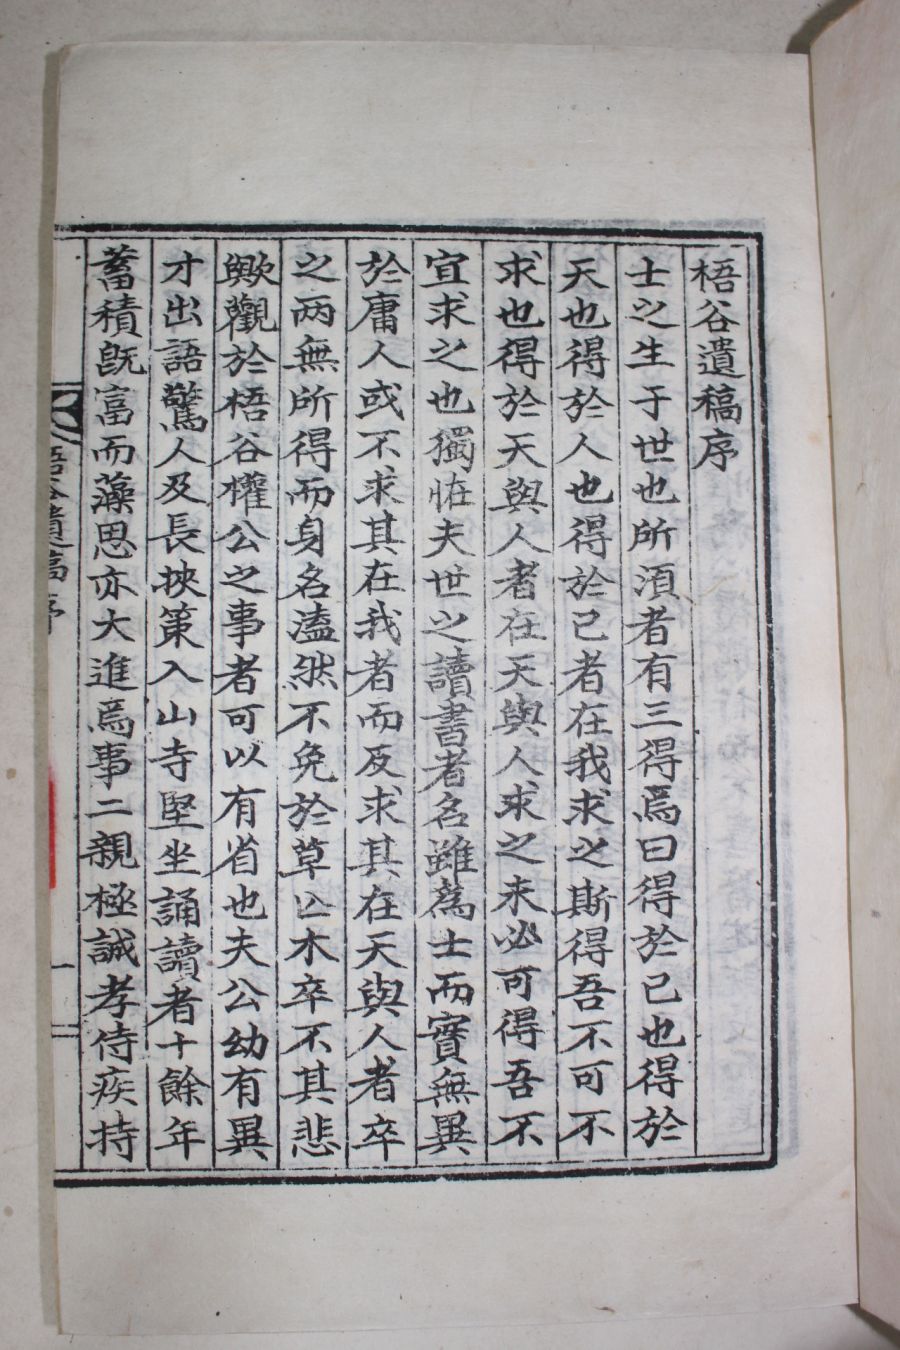 梧谷遺稿序
士之生于世也所湏者有三得焉曰得於已也得於
天也得於人也得於已者在我求之斯得吾不可不
求也得於天與人者在天與人求之未必可得吾不
宜求之也獨恠夫世之讀書者名雖爲士而實無異
於庸人或不求其在我者而反求其在天與人者卒
之两無所得而身名溘然不免於草亡木卒不其悲
歟觀於梧谷權公之事者可以有省也夫公幼有異
才出語驚人及長挾策入山寺堅坐誦讀者十餘年
蓄積旣富而藻思亦大進焉事二親極誠孝侍疾持
梧谷遺稿序
一